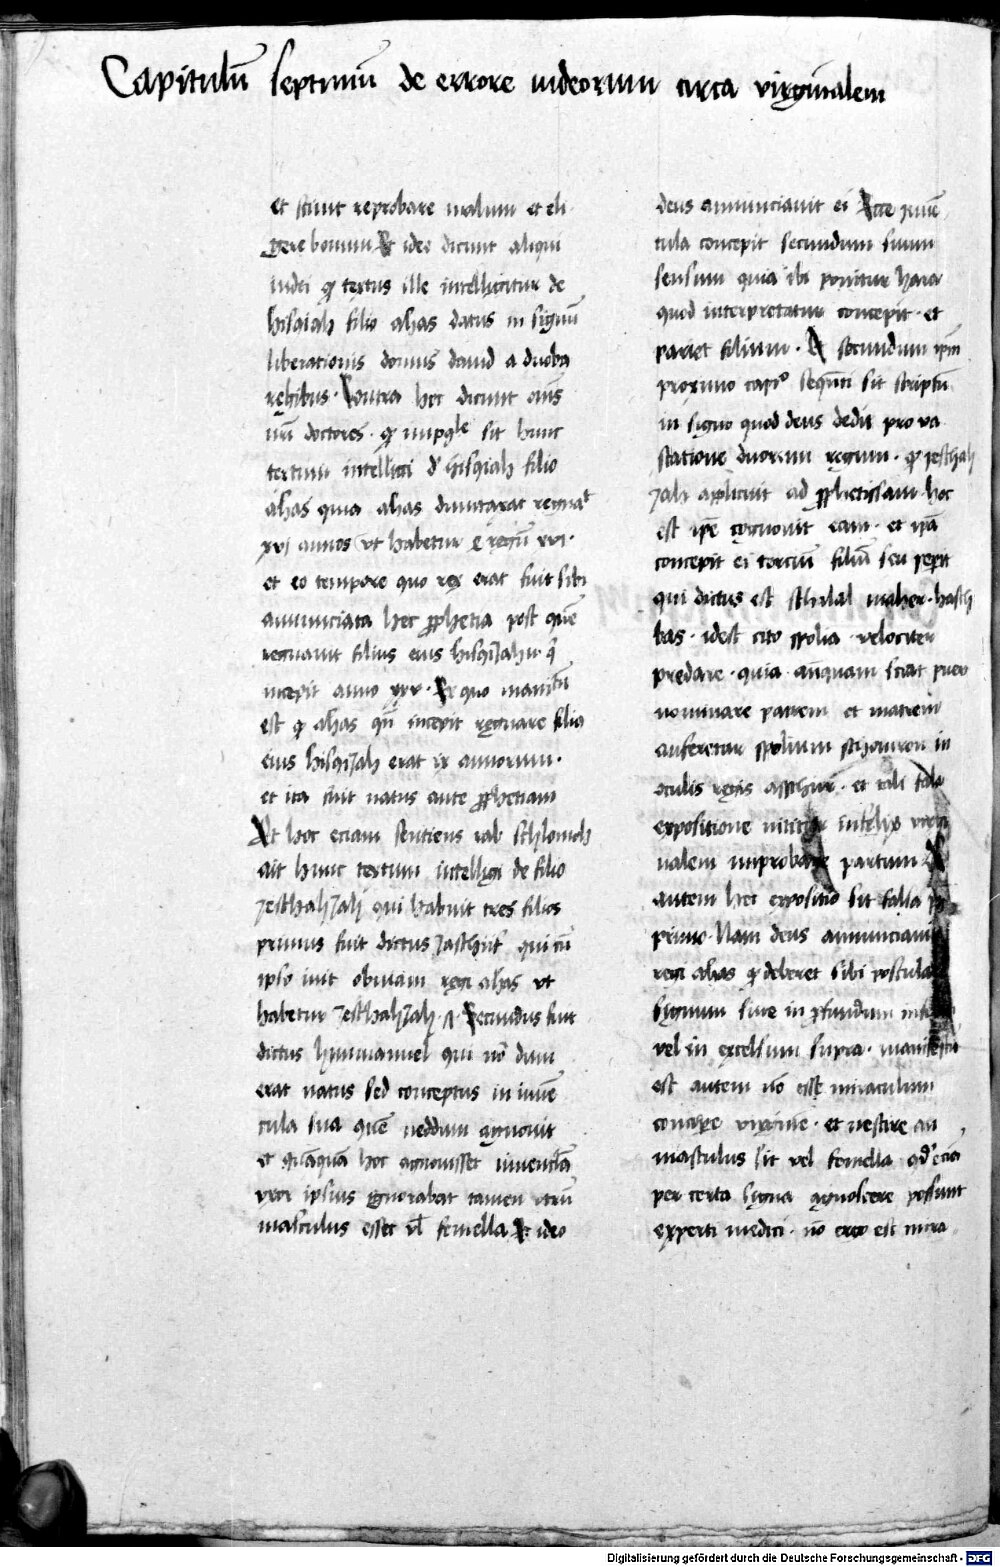 Capitulū septimū de errore iudeorum circa virginalem
et sciunt reprobare malum et eli
gere bonum Et ideo dicunt aliqui
iudei ꝙ textus ille intelligitur de
hisqiah filio ahas datus in signū
liberationis domus dauid a duobꝫ
regibus. Contra hoc dicunt oīns
nr̄i doctores. ꝙ impossibile sit hunc
textum intelligi de hisqiah filio
ahas quia ahas duntaxat regnat
xvj annos vt habetur regū xvi.
et eo tempore quo rex erat fuit sibi
annunciata hec ꝓphetia post quē
regnauit filius eius hisqijahu. q̄
incepit anno xxv. Ex quo manifestū
est ꝙ ahas qn̄ incepit regnare filiꝰ
eius hisqijah erat ix annorum.
et ita fuit natus ante ꝓphetiam
Et hoc eciam sentiens rab schlomoh
ait hunc textum intelligi de filio
Jesthahjah qui habuit tres filios
primus fuit dictus Jaschuf qui cū
ipso iuit obuiam regi ahas vt
habetur Jesthahjah. Secundus fuit
dictus himmanuel qui nō dum
erat natus sed conceptus in iuuē
cula sua quē neddum agnouit
et quāquā hoc agnouisset iuuencla
vxor ipsius ignorabat tamen vtrū
masculus esset vl̄ femella Et ideo
deus annunciauit ei Ecce iuuē
cula concepit secundum suum
sensum quia ibi ponitur hara
quod interpretatur concepit. et
pariet filium. Et secundum ipm̄
proximo cap̄o sequenti sit scriptū
in signo quod deus dedit pro va
statione duorum regum. ꝙ jesthah
jah aplicuit ad ꝓphetissam hoc
est ipse cognouit eam. et ipā
concepit ei tercium filiū seu peperit
qui dictus est schalal maher. hasch
bas. idest cito spolia velociter
predare. quia anquam sciat puer
nominare patrem et matrem
auferetur spolium schomron in
oculis regis asschur. et tali
expositione nititur
nalem improbare partum
autem hec expositio sit falsa
primo. Nam deus annunciauit
regi ahas ꝙ deberet sibi postula
signum siue in ꝓfundum
vel in excelsum supra. manifestū
est autem nō esse miraculum
concipere virginē. et nescire an
masculus sit vel femella qd eciā
per certa signa agnoscere possunt
experti medici. nō ergo est mira
Digitalisierung gefördert durch die Deutsche Forschungsgemeinschaft - DFG